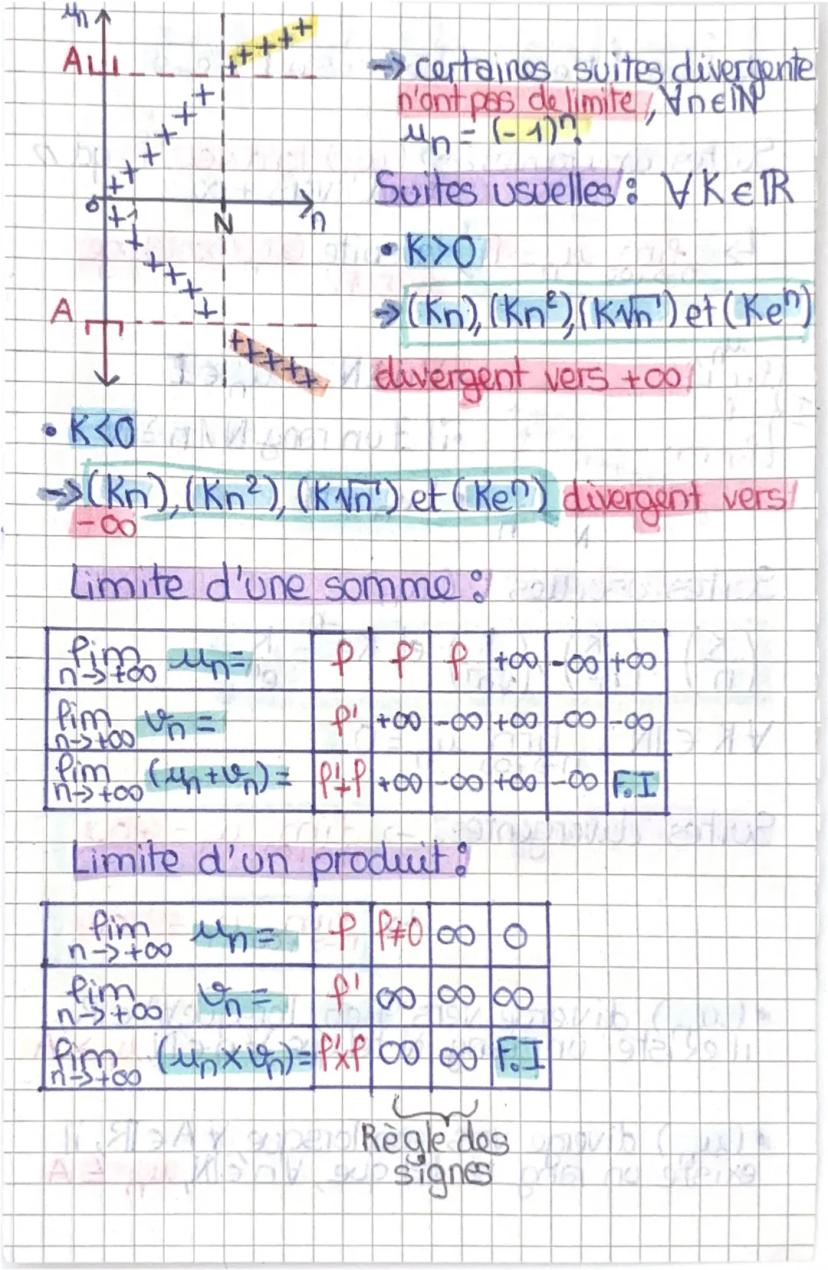 un
A
0
1
N
n
A
→ certaines suites divergente
n'ont pas de limite, ∀n∈ℕ
un = (-1)ⁿ.
Suites usuelles : ∀K∈ℝ
• K>0
→ (Kn), (Kn²), (K√n) et (Keⁿ)
divergent vers +∞
• K<0
→ (Kn), (Kn²), (K√n) et (Keⁿ) divergent vers
-∞
Limite d'une somme :
lim n→+∞ un = | ℓ | ℓ | ℓ | +∞ | -∞ | +∞
lim n→+∞ vn = | ℓ' | +∞ | -∞ | +∞ | -∞ | -∞
lim n→+∞ (un+vn) = | ℓ'+ℓ | +∞ | -∞ | +∞ | -∞ | F.I
Limite d'un produit :
lim n→+∞ un = | ℓ | ℓ≠0 | ∞ | 0
lim n→+∞ vn = | ℓ' | ∞ | ∞ | ∞
lim n→+∞ (un×vn) = | ℓ'×ℓ | ∞ | ∞ | F.I
Règle des
signes